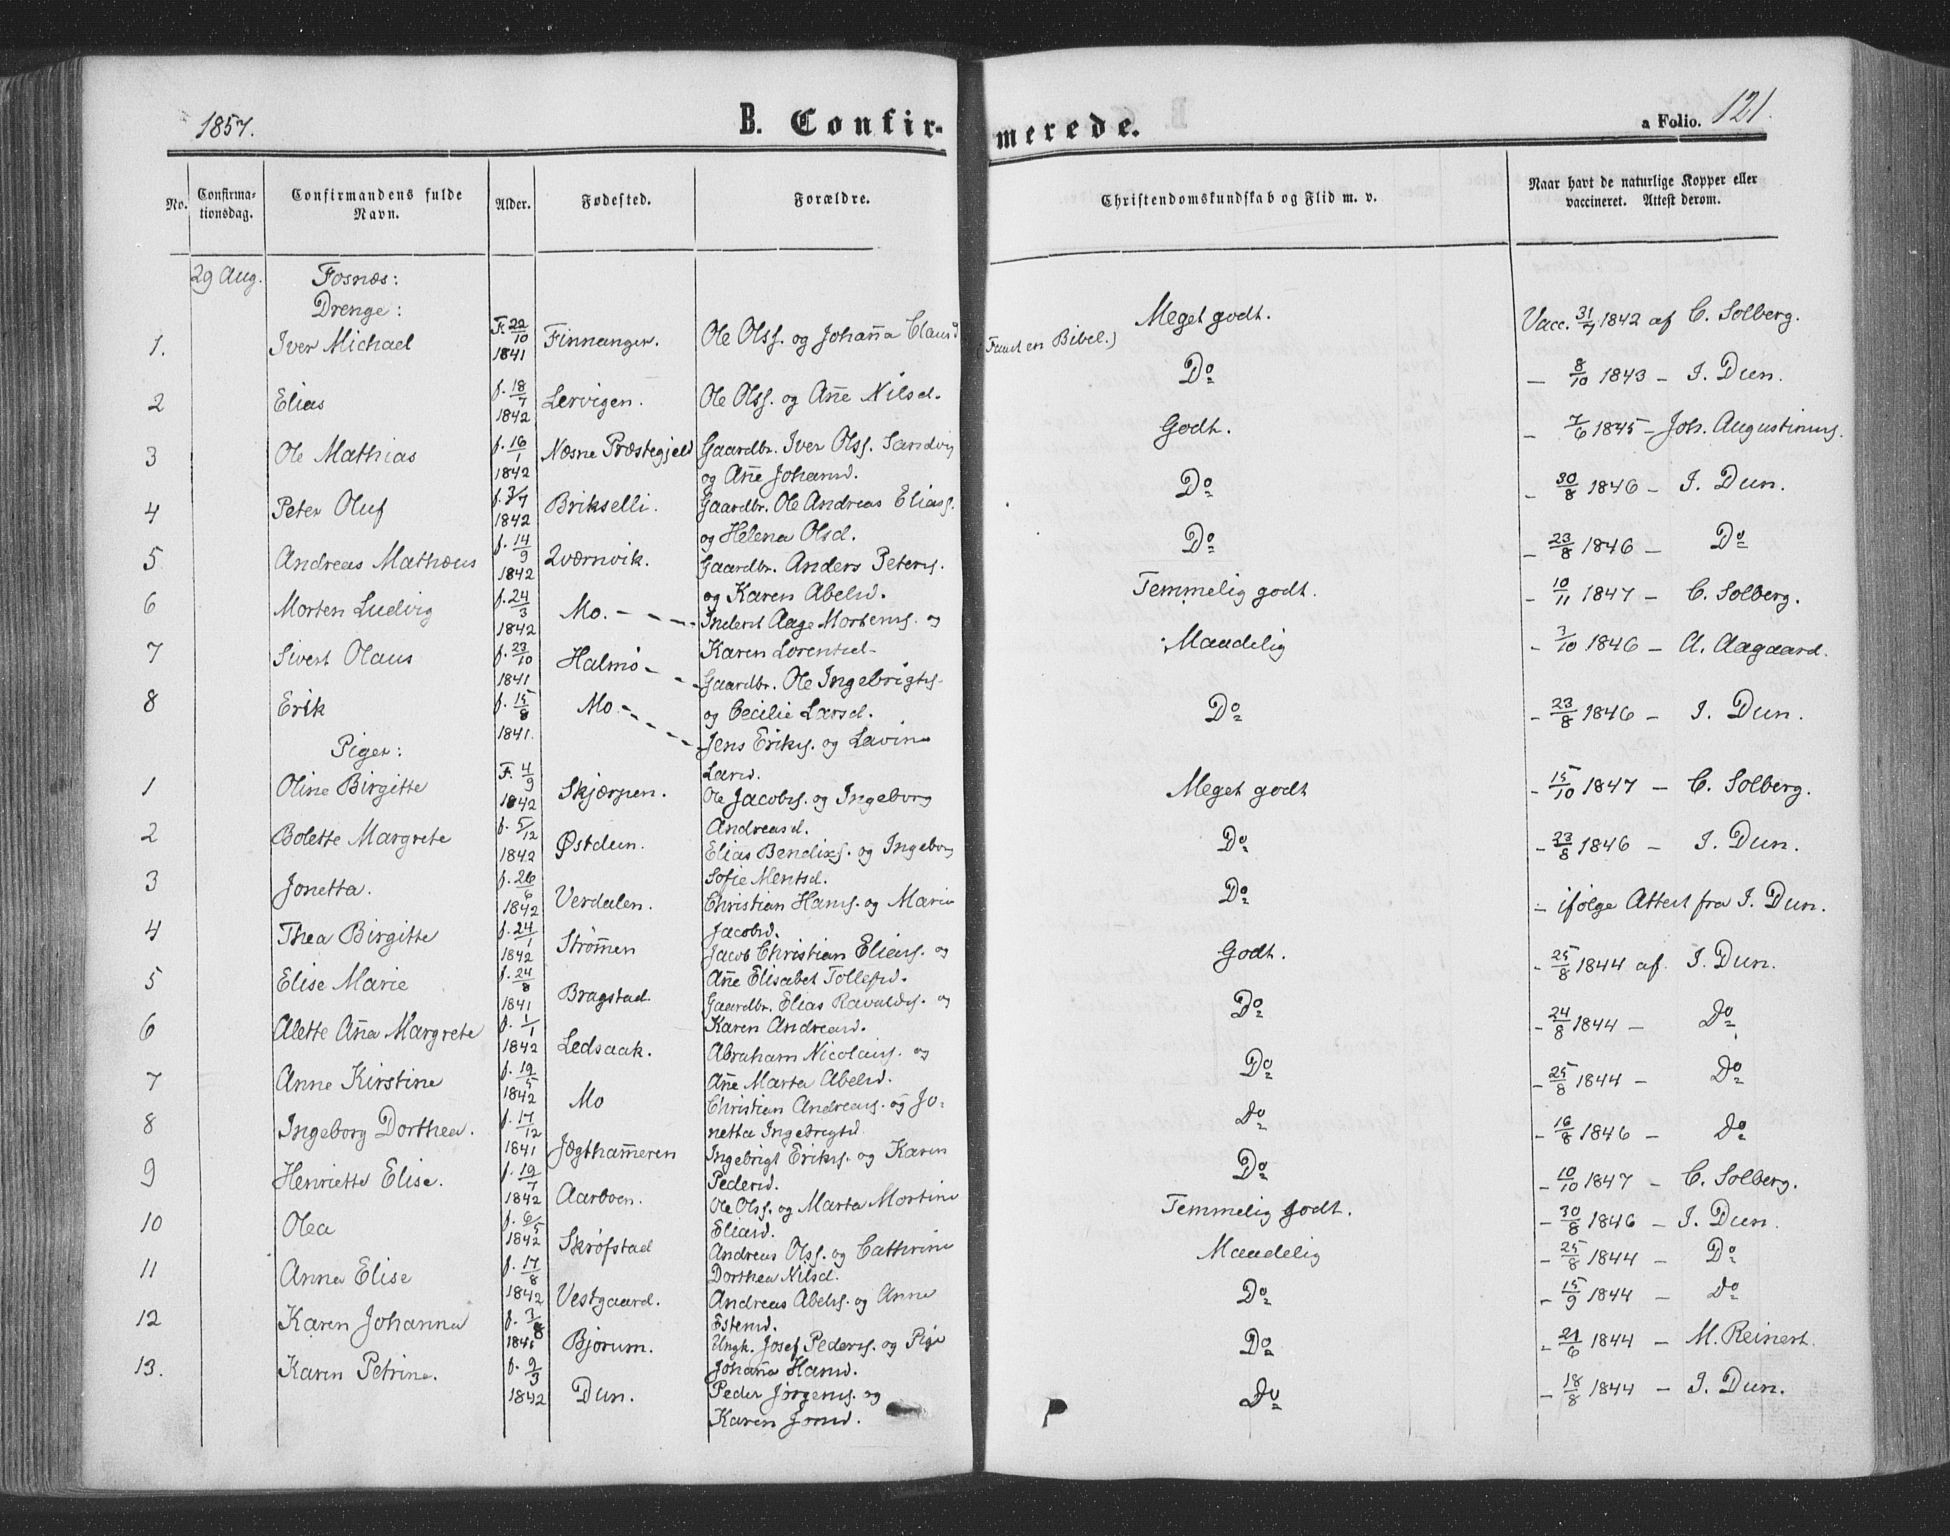 1857.
B. Confirmerede.
a Folio. 121.
No. Confirmationsdag. Confirmandens fulde Navn. Alder. Fødested. Forældre. Christendomskundskab og Flid m. v. Naar havt de naturlige Kopper eller vaccineret. Attest derom.
29 Aug. Fosnæs:
Drenge:
1. Iver Michael F. 22/10 1841 Finnanger. Ole Olss. og Johan̄a Clausd (Faaet en Bibel.) Meget godt. Vacc. 31/7 1842 af C. Solberg.
2 Elias f. 18/7 1842 Lervigen. Ole Olss. og An̄e Nilsd. Do - 8/10 1843 - I. Dun.
3 Ole Mathias f. 16/1 1842 Næsne Præstegjeld Gaardbr. Iver Olss. Sandvig og An̄e Johansd. Godt. - 7/6 1845 - Joh. Augustinus.
4 Peter Oluf f. 3/7 1842 Brikselli. Gaardbr. Ole Andreas Eliass. og Helena Olsd. Do - 30/8 1846 - I. Dun.
5 Andreas Mathæus f. 14/9 1842 Qværnvik. Gaardbr. Anders Peters. og Karen Abelsd. Do - 23/8 1846 - Do
6 Morten Ludvig f. 24/3 1842 Mo. - - - Inderst Aage Mortens. og Karen Lorentsd. Temmelig godt. - 10/11 1847 - C. Solberg.
7 Sivert Olaus f. 23/10 1841 Halmø - - - Gaardbr. Ole Ingebrigts. og Cecilie Larsd. Maadelig - 3/10 1846 - A. Aagaard.
8 Erik f. 15/8 1841. Mo. - - - Jens Eriks. og Lavina Larsd. Do - 23/8 1846 - I. Dun.
Piger:
1 Oline Birgitte F. 4/9 1842 Skjærpen. Ole Jacobs. og Ingeborg Andreasd. Meget godt - 15/10 1847 - C. Solberg.
2 Bolette Margrete f. 5/12 1842 Østdun. Elias Bendixs. og Ingeborg Sofie Mentsd. Do - 23/8 1846 - I. Dun.
3 Jonetta. f. 26/6 1842 Verdalen. Christian Hans. og Maria Jacobsd. Do - ifølge Attest fra I. Dun.
4 Thea Birgitte f. 24/1 1842 Strøm̄en Jacob Christian Elias. og An̄e Elisabet Tollefsd. Godt. - 25/8 1844 af I. Dun.
5 Elise Marie f. 24/8 1841 Bragstad Gaardbr. Elias Ravalds. og Karen Andreasd. Do - 24/8 1844 - Do
6 Alette An̄a Margrete f. 1/1 1842 Ledsaak. Abraham Nicolais. og An̄e Marta Abelsd. Do - 25/8 1844 - Do
7 Anne Kirstine f. 19/5 1842 Mo Christian Andreas. og Jonetta Ingebrigtd. Do - 16/8 1846 - Do
8 Ingeborg Dorthea. f. 17/12 1841 Jægtham̄eren Ingebrigt Eriks. og Karen Pedersd. Do - 10/10 1847 - C. Solberg.
9 Henriette Elise. f. 19/7 1842 Aarboen. Ole Olss. og Marta Mortine Eliasd. Temmelig godt. - 30/8 1846 - I. Dun.
10 Olea f. 6/5 1842 Skrøfstad Andreas Olss. og Cathrine Dorthea Nilsd. Maadelig - 25/8 1844 - Do
11 Anna Elise f. 17/8 1842 Vestgaard. Andreas Abels. og Anne Estensd. Do - 15/9 1844 - Do
12 Karen Johanna f. 3/8 Bjørum. Ungk. Josef Peders. og Pige Johan̄a Hansd. Do - 21/6 1844 - M. Reinert.
13. Karen Petrine. f. 9/3 1842 Dun. Peder Jørgens. og Karen Jonsd. Do - 18/8 1844 - I. Dun.